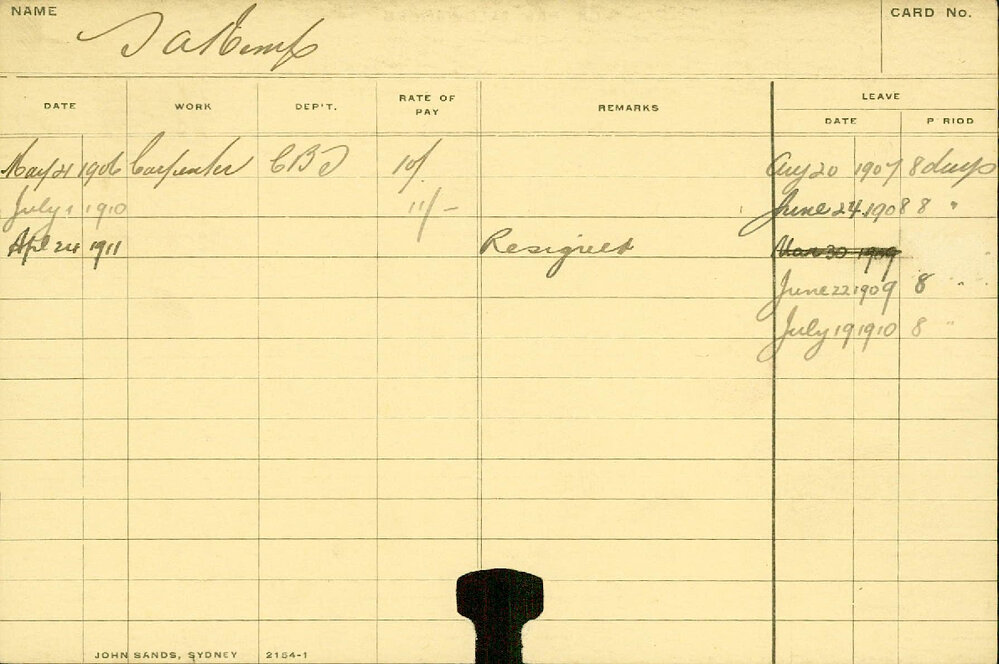 NAME
CARD No.
J A Kemp
DATE WORK DEP'T. RATE OF PAY REMARKS LEAVE
DATE P RIOD
May 21 1906 Carpenter CBJ 10/ Aug 20 1907 8 days
July 1 1910 11/- June 24 1908 8 "
Apl 24 1911 Resigned Mar 30 1909 "
June 22 1909 8 "
July 19 1910 8 "
JOHN SANDS, SYDNEY 2154-1